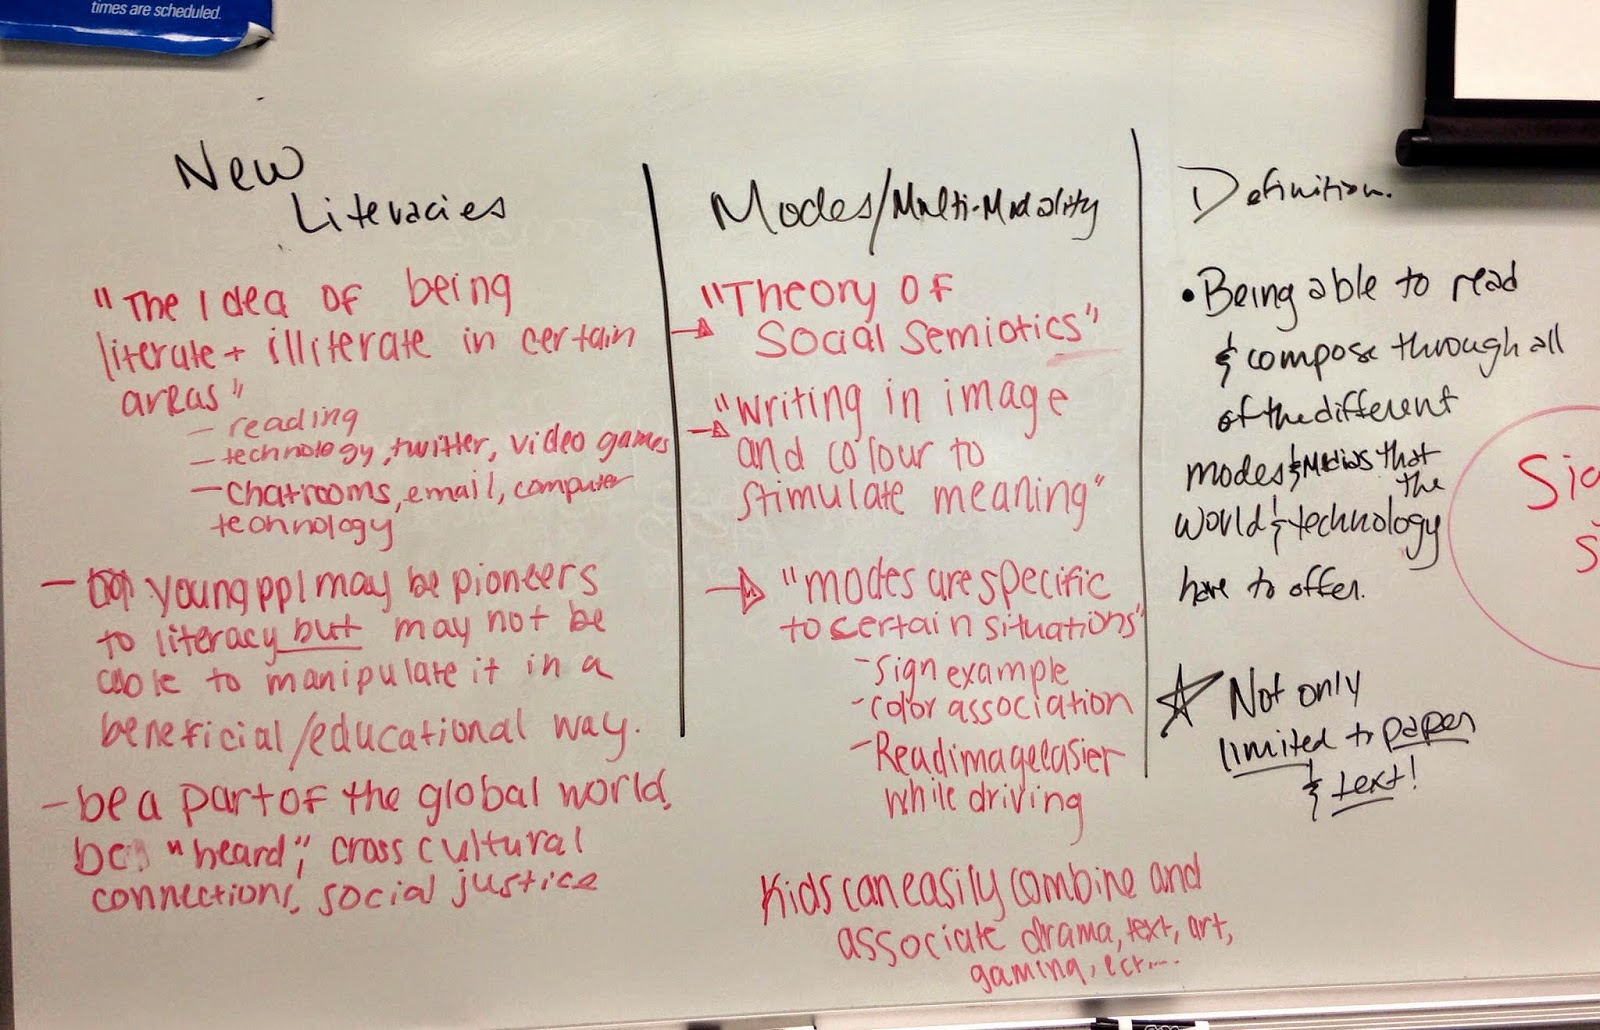 times are scheduled.
New
Literacies
"The Idea of being
literate + illiterate in certain
areas"
- reading
- technology, twitter, video games
- Chatrooms, email, computer
technology
- young ppl may be pioneers
to literacy but may not be
able to manipulate it in a
beneficial/educational way.
- be a part of the global world,
be "heard", cross cultural
connections, social justice
Modes/Multi-Modality
"Theory of
Social Semiotics"
"writing in image
and colour to
stimulate meaning"
"modes are specific
to certain situations"
- Sign example
- color association
- Read image easier
while driving
Kids can easily combine and
associate drama, text, art,
gaming, ect....
Definition.
• Being able to read
& compose through all
of the different
modes & medias that
the
world & technology
have to offer.
Not only
limited to paper
& text!